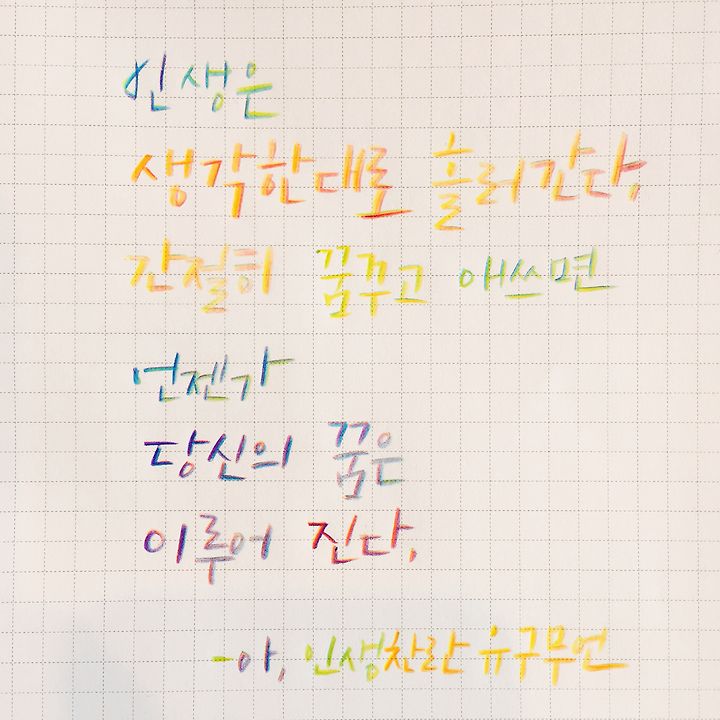 인생은
생각한대로 흘러간다,
간절히 꿈꾸고 애쓰면
언젠가
당신의 꿈은
이루어 진다,
-아, 인생찬란 유구무언